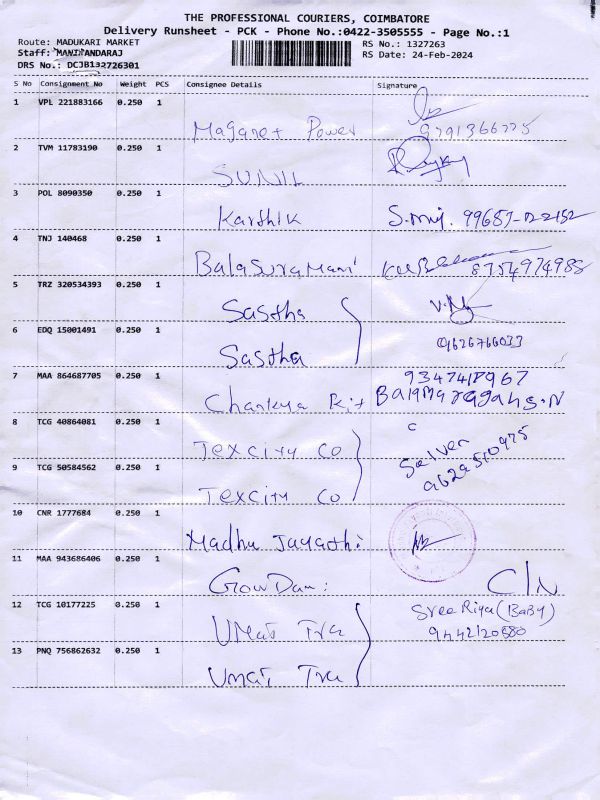 THE PROFESSIONAL COURIERS, COIMBATORE
Delivery Runsheet - PCK - Phone No.:0422-3505555 - Page No.:1
Route: MADUKARI MARKET RS No.: 1327263
Staff: MANIKANDARAJ RS Date: 24-Feb-2024
DRS No.: DCJB132726301
S No Consignment No Weight PCS Consignee Details Signature
1 VPL 221883166 0.250 1 Magaret Power 9791366775
2 TVM 11783190 0.250 1 SUNIL
3 POL 8090350 0.250 1 Karthik
4 TNJ 140468 0.250 1 Balasuramani 8754974988
5 TRZ 320534393 0.250 1 Sastha
6 EDQ 15001491 0.250 1 Sastha 9626766033
7 MAA 864687705 0.250 1
8 TCG 40864081 0.250 1 Texcity Co Selven
9 TCG 50584562 0.250 1 Texcity Co
10 CNR 1777684 0.250 1 Madhu Jayathi
11 MAA 943686406 0.250 1 C/N
12 TCG 10177225 0.250 1 UMai Tra Sree Riya (BaBy)
9442120580
13 PNQ 756862632 0.250 1 Umai Tra